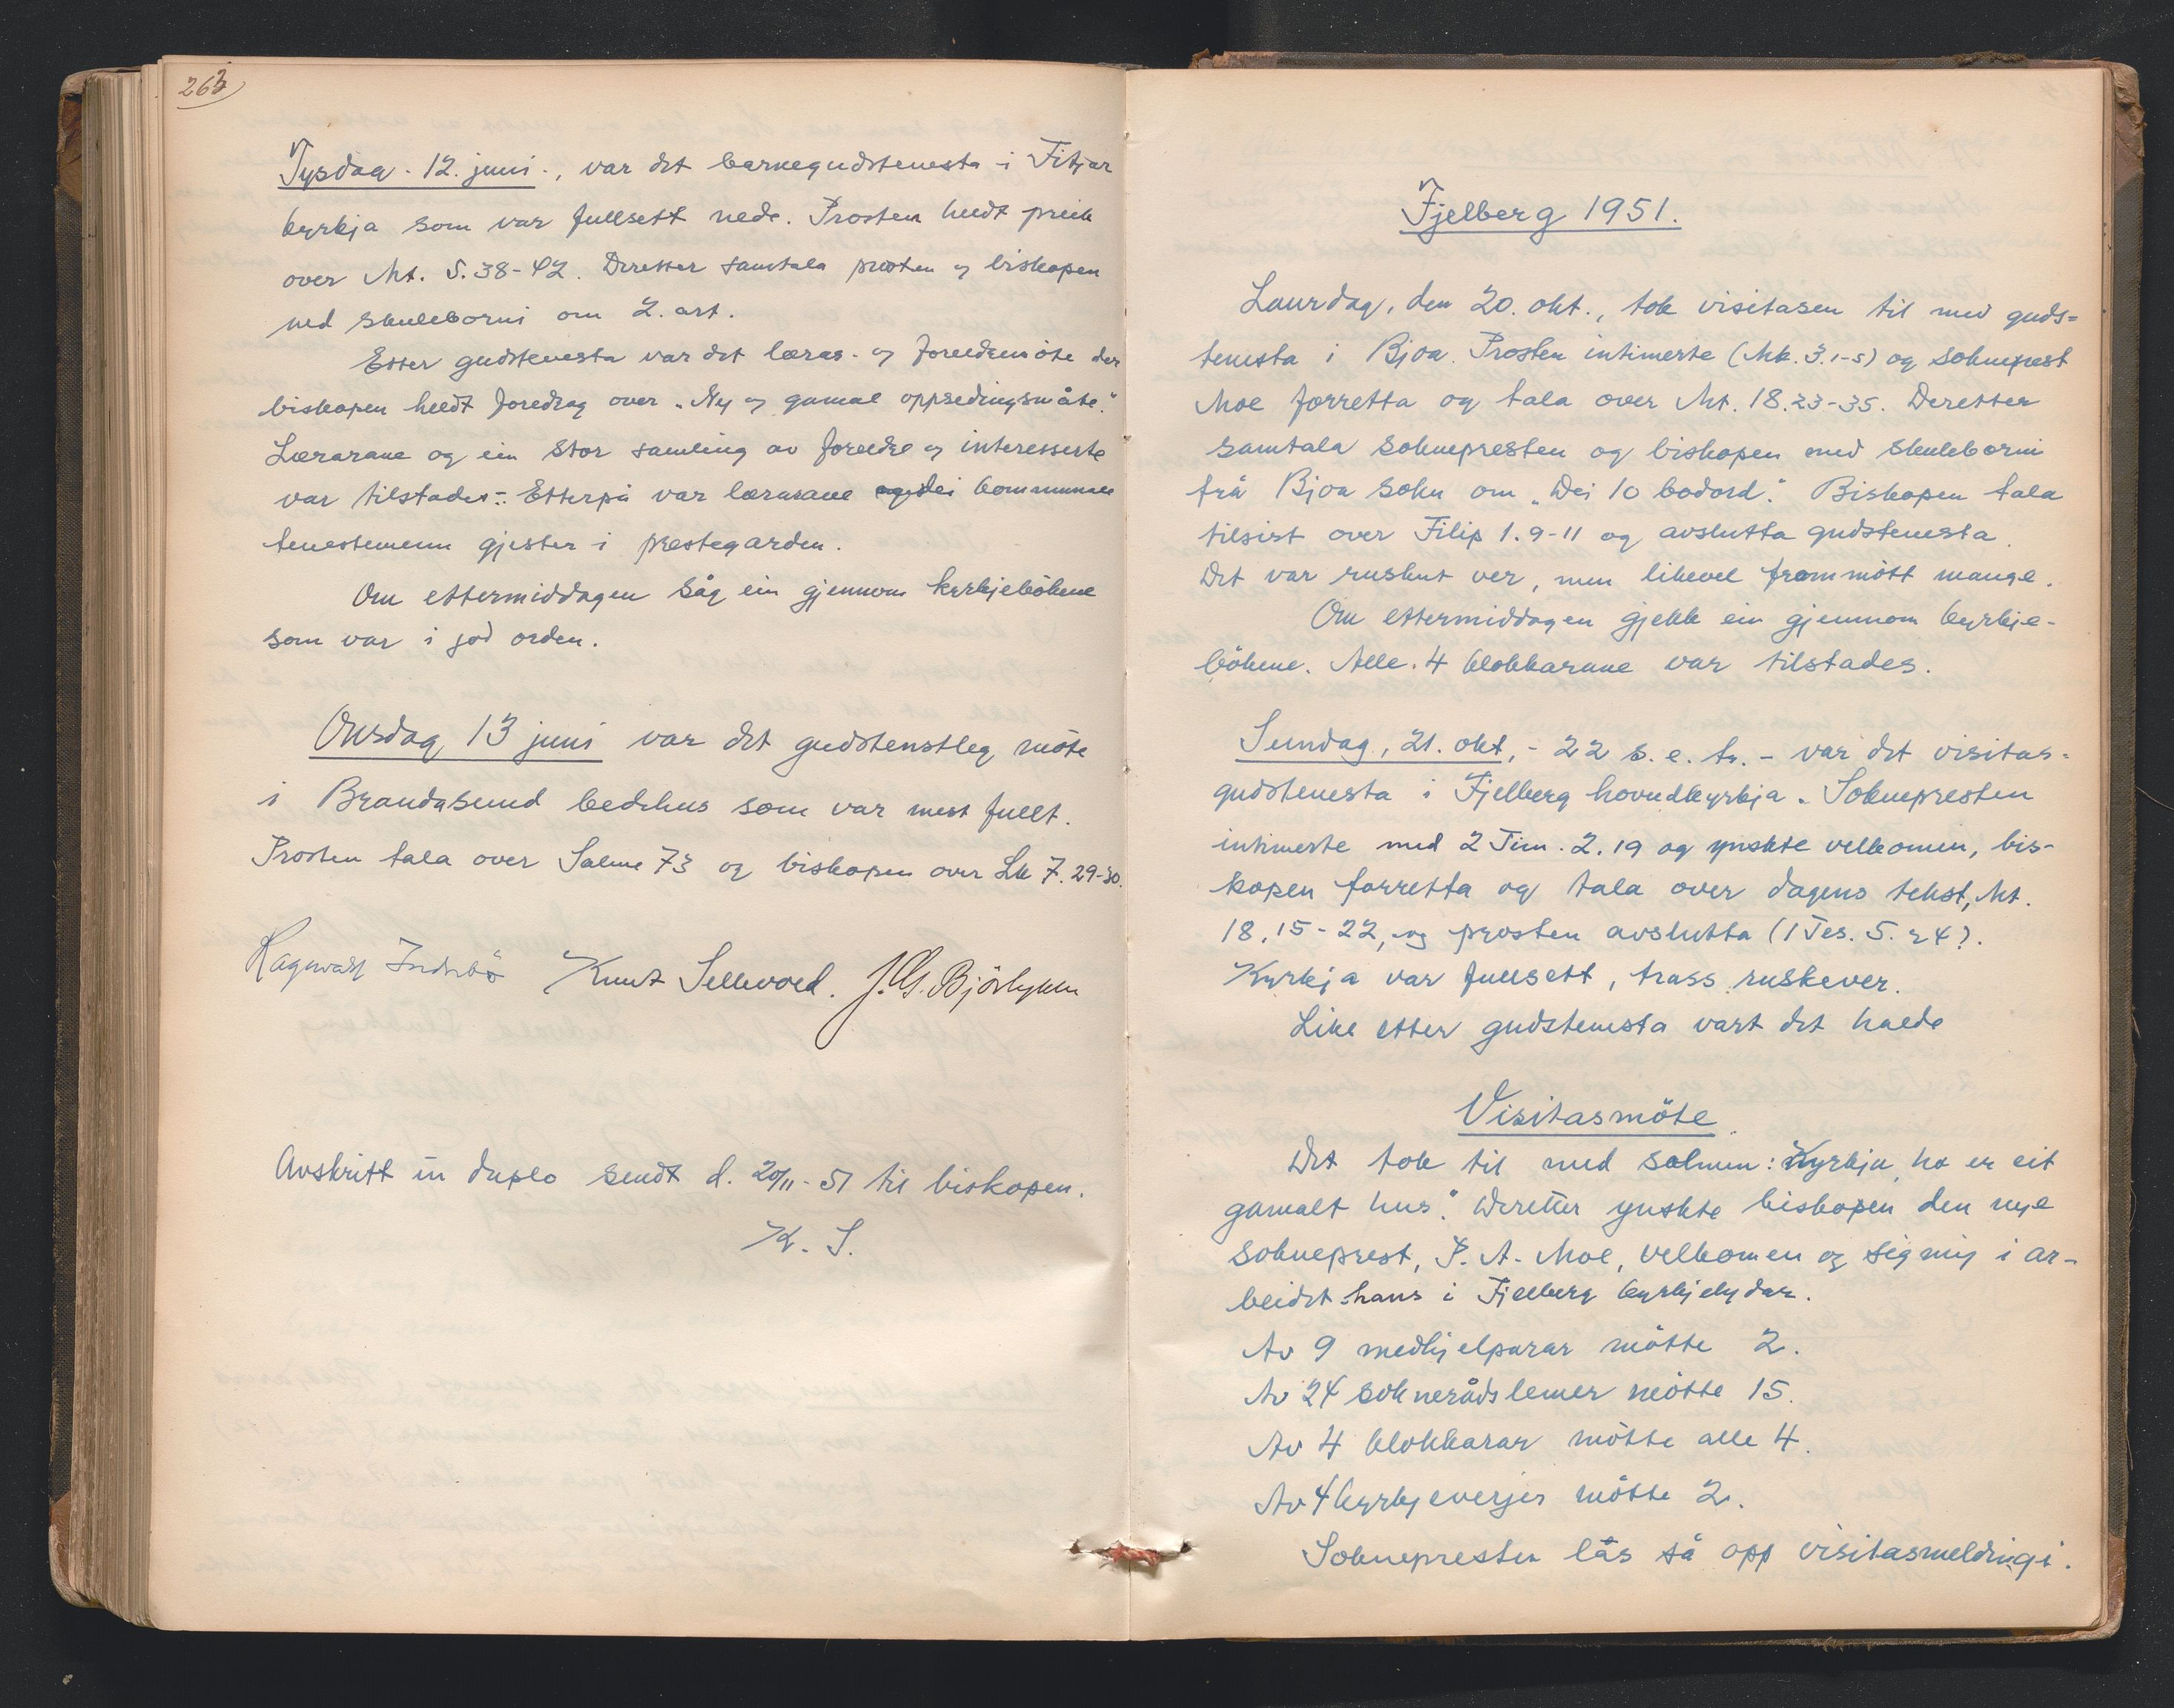 263
Tysdag 12. juni., var det barnegudstenesta i Fitjar
kyrkja som var fullsett nede. Prosten heldt preik
over Mt. 5. 38-42. Deretter samtala prosten og biskopen
med skuleborni om 2. art.
Etter gudstenesta var det lærar- og foreldremöte der
biskopen heldt foredrag over „Ny og gamal oppsedingsmåte."
Lærarane og ein stor samling av foreldre og interesserte
var tilstades. Etterpå var lærarane og dei kommunale
tenestemenn gjester i prestegarden.
Om ettermiddagen såg ein gjennom kyrkjebökene
som var i god orden.
Onsdag 13 juni var det gudstenstleg möte
i Brandasund bedehus som var mest fullt.
Prosten tala over Salme 73 og biskopen over Lk 7. 29-30.
Ragnvald Indrebö Knut Sellevold. J. G. Björlykke
Avskrift in duplo sendt d. 20/11-51 til biskopen.
K. S.
Fjelberg 1951.
Laurdag, den 20. okt., tok visitasen til med guds=
tenesta i Bjoa. Prosten intimerte (Mk. 3. 1-5) og sokneprest
Moe forretta og tala over Mt. 18. 23-35. Deretter
samtala soknepresten og biskopen med skuleborni
frå Bjoa sokn om „Dei 10 bodord." Biskopen tala
tilsist over Filip 1. 9-11 og avslutta gudstenesta.
Det var ruskut ver, men likevel frammött mange.
Om ettermiddagen gjekk ein gjennom kyrkje-
bökene. Alle 4 klokkarane var tilstades.
Sundag, 21. okt, - 22 s. e. tr. - var det visitas=
gudstenesta i Fjelberg hovudkyrkja. Soknepresten
intimerte med 2 Tim. 2. 19 og ynskte velkomen, bis-
kopen forretta og tala over dagens tekst, Mt.
18. 15-22, og prosten avslutta (1 Tes. 5. 24).
Kyrkja var fullsett, trass ruskever.
Like etter gudstenesta vart det halde
Visitasmöte.
Det tok til med salmen: Kyrkja ho er eit
gamalt hus". Deretter ynskte biskopen den nye
sokneprest, P. A. Moe, velkomen og signing i ar-
beidet hans i Fjelberg kyrkjelydar.
Av 9 medhjelparar mötte 2.
Av 24 soknerådslemer mötte 15.
Av 4 klokkarar mötte alle 4.
Av 4 kyrkjeverjer mötte 2.
Soknepresten lås så opp visitasmeldingi.